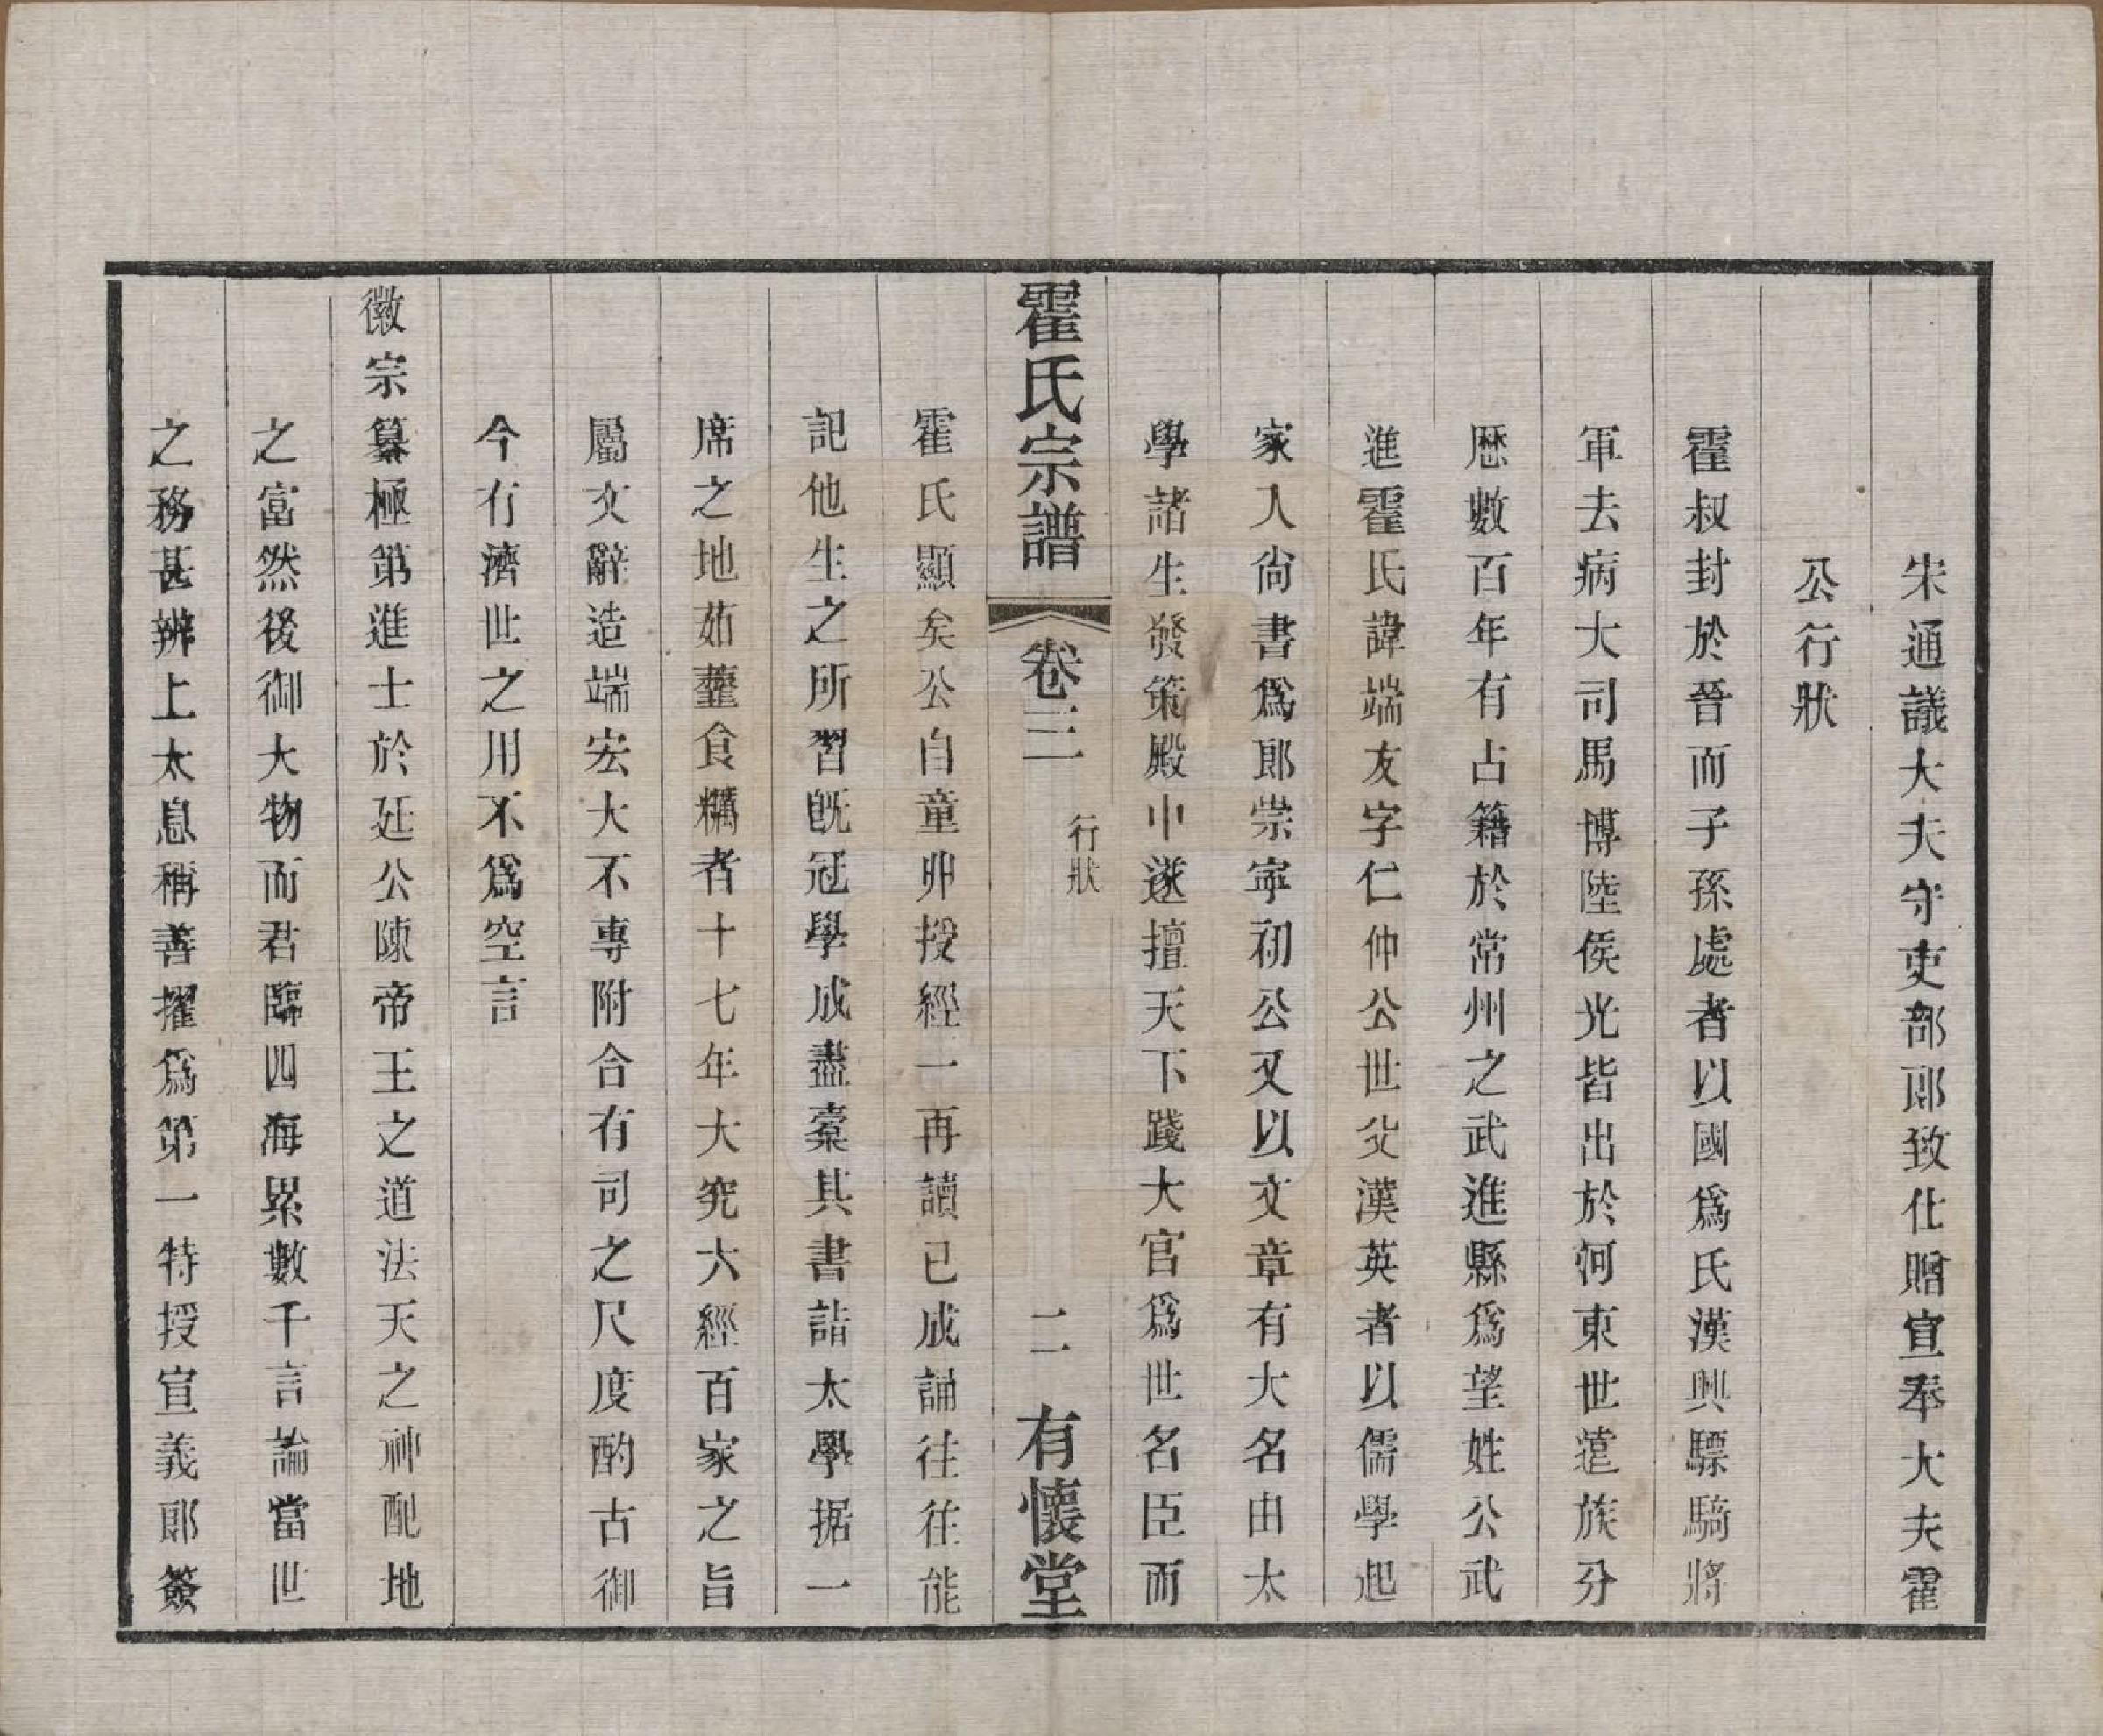 宋通議大夫守吏部郎致仕贈宣奉大夫霍
公行狀
霍叔封於晉而子孫處者以國爲氏漢興驃騎將
軍去病大司馬博陸侯光皆出於河東世遠族分
歷數百年有占籍於常州之武進縣爲望姓公武
進霍氏諱端友字仁仲公世父漢英者以儒學起
家入尚書爲郎崇寧初公又以文章有大名由太
學諸生發策殿中遂擅天下踐大官爲世名臣而
霍氏宗譜 卷三 行狀 二 有懷堂
霍氏顯矣公自童丱授經一再讀已成誦往往能
記他生之所習旣冠學成盡棄其書詣太學据一
席之地茹虀食糲者十七年大究六經百家之旨
屬文辭造端宏大不專附合有司之尺度酌古御
今有濟世之用不爲空言
徽宗纂極第進士於廷公陳帝王之道法天之神配地
之富然後御大物而君臨四海累數千言論當世
之務甚辨上太息稱善擢爲第一特授宣義郎簽